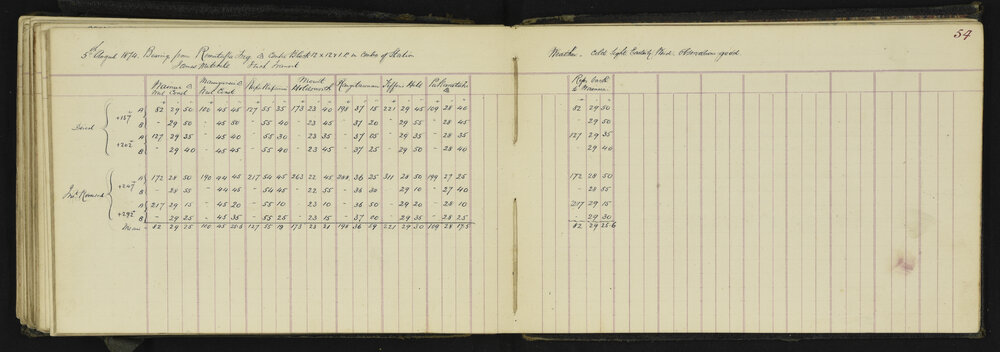 54
5th August 1874. Bearings from Trig. Block 12 x 12 x 1 P. in centre of Station
James Mitchell
Weather - Cold light Easterly Wind. Observation good
West Coast West Coast Mount Holdsworth Hill
Rep. back to
A 82 29 50 100 45 45 127 55 35 173 23 40 198 37 15 221 29 45 109 28 40 82 29 50
+157
B - 29 50 - 45 50 - 55 40 - 23 45 - 37 20 - 29 55 - 28 45 - 29 50
Direct
A 127 29 35 - 45 40 - 55 30 - 23 35 - 37 05 - 29 35 - 28 35 127 29 35
+202
B - 29 40 - 45 45 - 55 40 - 23 45 - 37 25 - 29 50 - 28 40 - 29 40
A 172 28 50 190 44 45 217 54 45 263 22 45 288 36 25 311 28 50 199 27 25 172 28 50
+247
B - 28 55 - 44 45 - 54 45 - 22 55 - 36 30 - 29 10 - 27 40 - 28 55
Inst. Reversed
A 217 29 15 - 45 20 - 55 10 - 23 10 - 36 50 - 29 20 - 28 10 217 29 15
+292
B - 29 25 - 45 35 - 55 25 - 23 15 - 37 00 - 29 35 - 28 25 - 29 30
Mean - 82 29 25 100 45 127 55 19 173 23 21 198 36 59 221 29 30 109 28 17.5 82 29 25.6